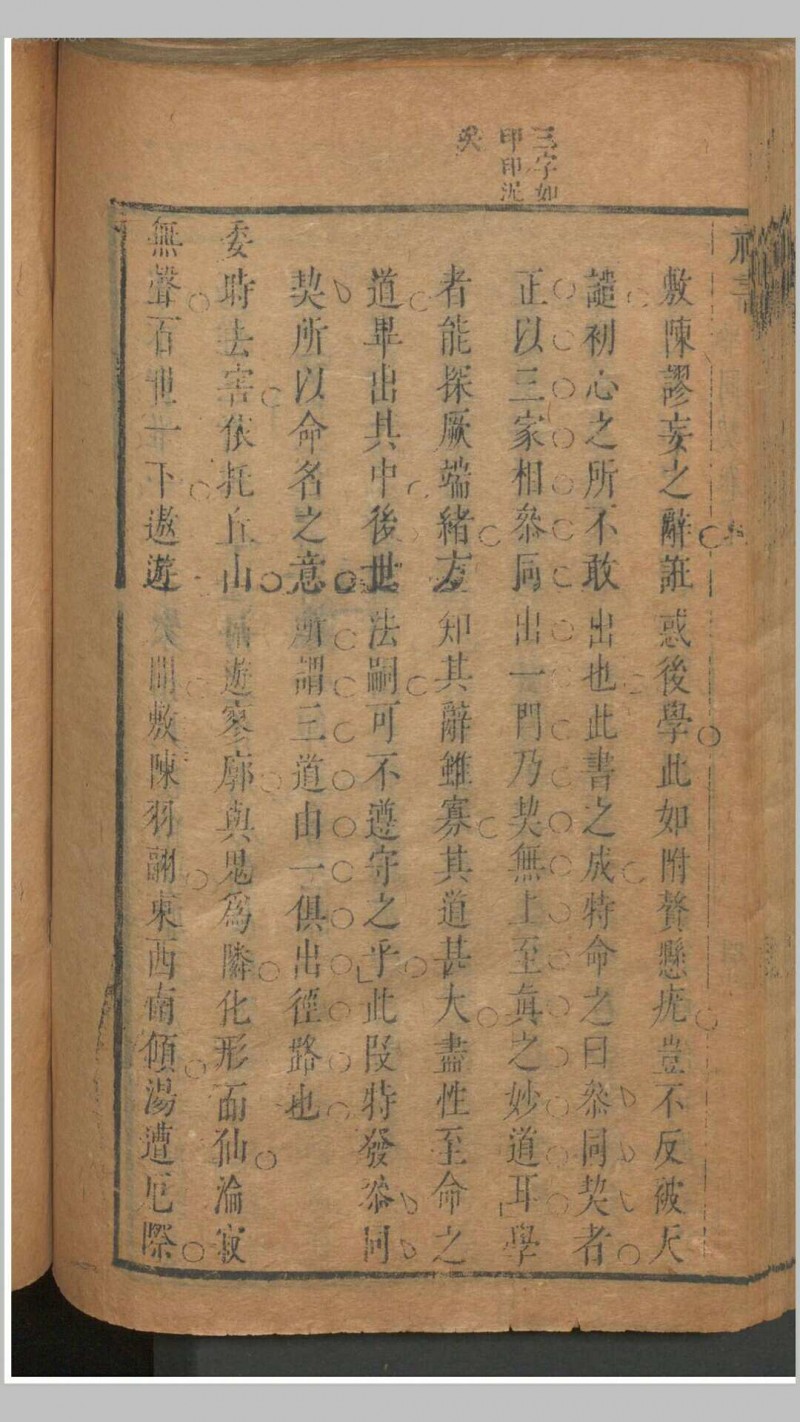 三字如
印印泥
矣
敷陳謬妄之辭誑惑後學此如附贅懸疣豈不反被大
譴初心之所不敢出也此書之成特命之曰叅同契者
正以三家相叅同出一門乃契無上至眞之妙道耳學
者能探厥端緒方知其辭雖寡其道甚大盡性至命之
道畢出其中後世法嗣可不遵守之乎此段特發叅同
契所以命名之意所謂三道由一俱出徑路也
委時去害依托丘山循遊寥廓與鬼爲隣化形而仙淪寂
無聲百世一下遨遊人間敷陳羽翮東西南傾湯遭厄際